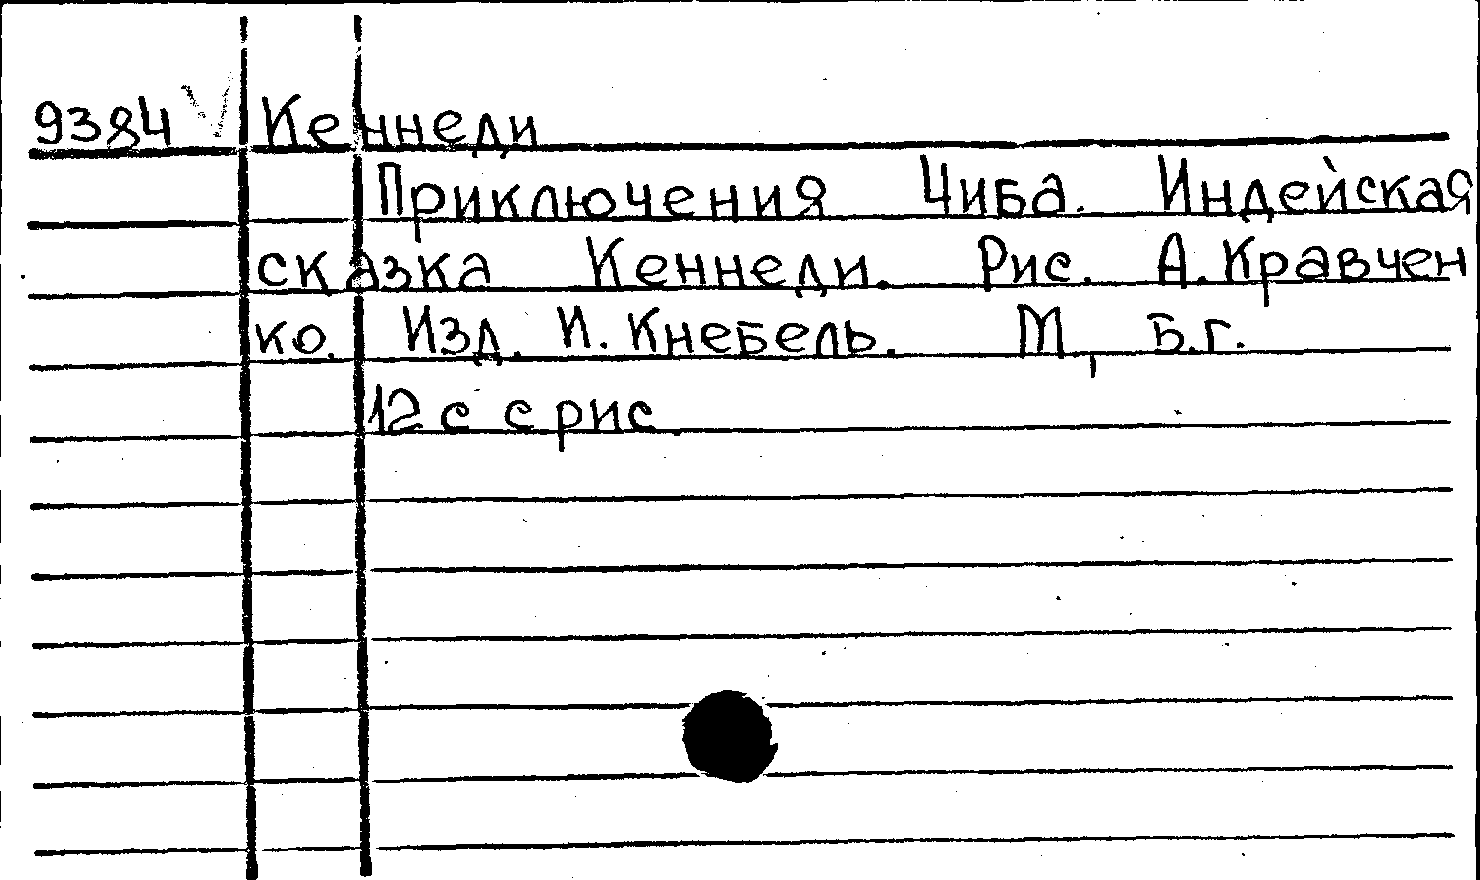 9384 V Кеннеди
Приключения Чиба. Индейская
сказка Кеннеди. Рис. А. Кравчен
ко. Изд. И. Кнебель. М, Б.г.
12 с с рис